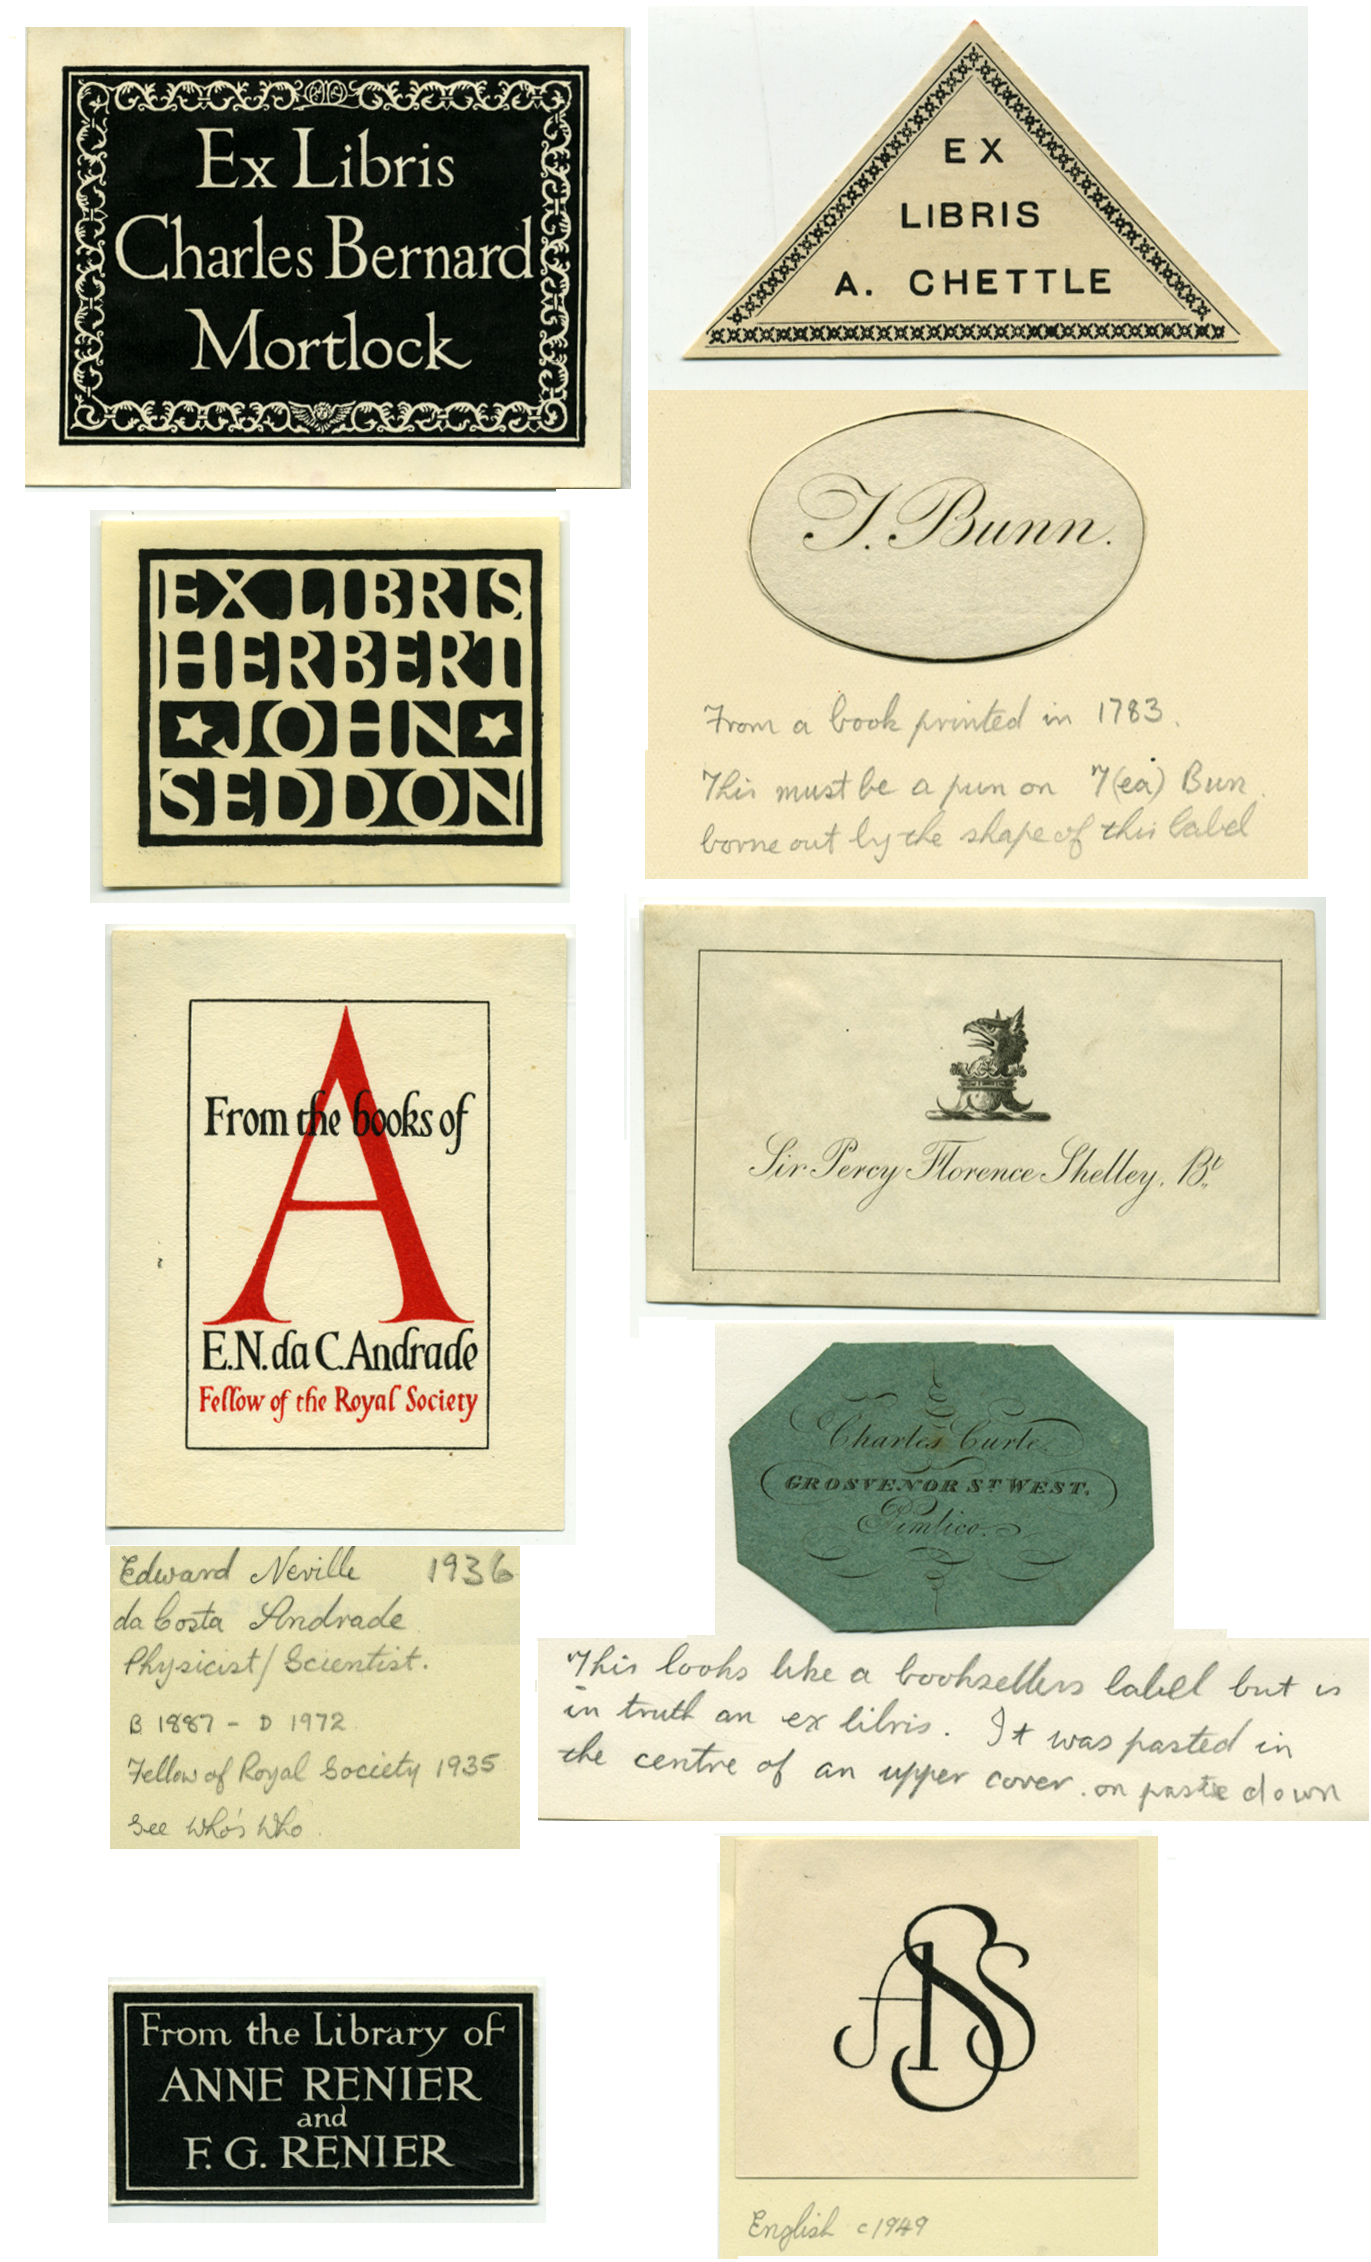 Ex Libris
Charles Bernard
Mortlock
EX
LIBRIS
A. CHETTLE
T. Bunn.
From a book printed in 1783.
This must be a pun on T(ea) Bun.
borne out by the shape of this label
EX LIBRIS
HERBERT
JOHN
SEDDON
From the books of
A
E.N. da C. Andrade
Fellow of the Royal Society
Edward Neville 1936
da Costa Andrade
Physicist/Scientist.
B 1887 - D 1972
Fellow of Royal Society 1935
See Who's Who.
Sir Percy Florence Shelley, Bt.
Charles Curle.
GROSVENOR ST WEST.
Pimlico.
This looks like a booksellers label but is
in truth an ex libris. It was pasted in
the centre of an upper cover. on paste down
From the Library of
ANNE RENIER
and
F. G. RENIER
English c1949